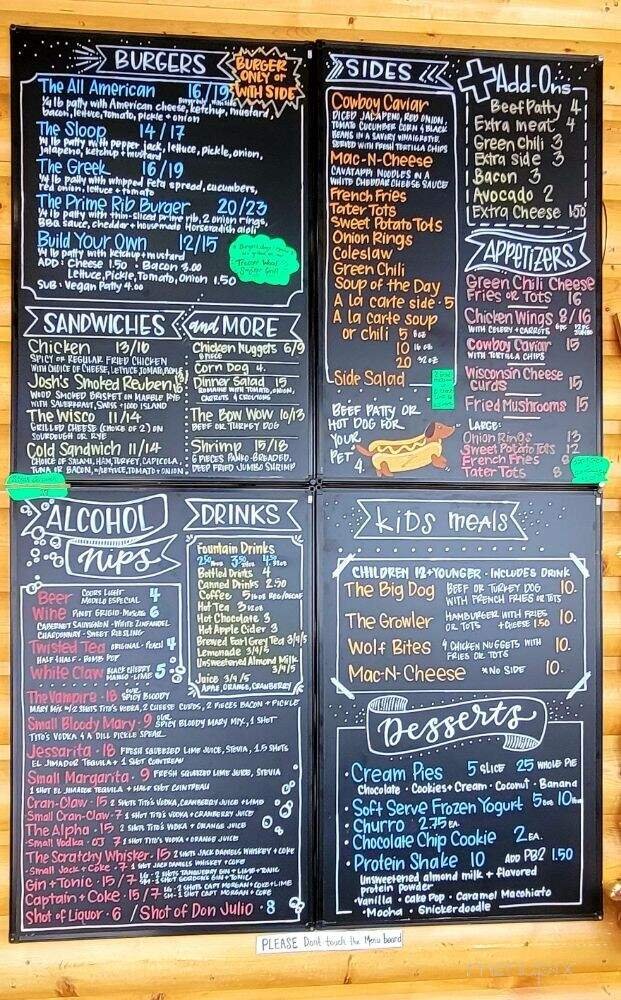 BURGERS
BURGER ONLY or WITH SIDE
The All American 16/19
¼ lb patty with American cheese, ketchup, mustard
bacon, lettuce, tomato, pickle + onion
The Sloop 14/17
¼ lb patty with pepper jack, lettuce, pickle, onion,
jalapeno, ketchup + mustard
The Greek 16/19
¼ lb patty with whipped feta spread, cucumbers,
red onion, lettuce + tomato
The Prime Rib Burger 20/23
¼ lb patty with thin-sliced prime rib, 2 onion rings,
BBQ sauce, cheddar + housemade Horseradish aioli
Build Your Own 12/15
¼ lb patty with ketchup + mustard
ADD: Cheese 1.50 · Bacon 3.00
Lettuce, Pickle, Tomato, Onion 1.50
SUB: Vegan Patty 4.00
SANDWICHES and MORE
Chicken 13/16
SPICY OR REGULAR FRIED CHICKEN
WITH CHOICE OF CHEESE, LETTUCE, TOMATO,
Josh's Smoked Reuben
WOOD SMOKED BRISKET ON MARBLE RYE
WITH SAUERKRAUT, SWISS + 1000 ISLAND
The Wisco 11/14
GRILLED CHEESE (CHOICE OF 2) ON
SOURDOUGH OR RYE
Cold Sandwich 11/14
CHOICE OF SALAMI, HAM, TURKEY, CAPICOLA,
TUNA OR BACON, LETTUCE, TOMATO + ONION
Chicken Nuggets 6/9
6 PIECE
Corn Dog 4.
Dinner Salad 15
ROMAINE WITH TOMATO, ONION,
CARROTS + CROUTONS
The Bow Wow 10/13
BEEF OR TURKEY DOG
Shrimp 15/18
6 PIECES PANKO-BREADED,
DEEP FRIED JUMBO SHRIMP
SIDES
Cowboy Caviar
DICED JALAPENO, RED ONION,
TOMATO CUCUMBER CORN + BLACK
BEANS IN A SAVORY VINAIGRETTE
SERVED WITH FRESH TORTILLA CHIPS
Mac-N-Cheese
CAVATAPPI NOODLES IN A
WHITE CHEDDAR CHEESE SAUCE
French Fries
Tater Tots
Sweet Potato Tots
Onion Rings
Coleslaw
Green Chili
Soup of the Day
A la carte side · 5
A la carte soup
or chili 5 8 oz
10 16 oz
20 32 oz
Side Salad
BEEF PATTY OR
HOT DOG FOR
YOUR
PET
4.
+Add-Ons
Beef Patty 4
Extra meat 4
Green Chili 3
Extra side 3
Bacon 3
Avocado 2
Extra Cheese 1.50
APPETIZERS
Green Chili Cheese
Fries or Tots 16
Chicken Wings 8/16
WITH CELERY + CARROTS
Cowboy Caviar 15
WITH TORTILLA CHIPS
Wisconsin Cheese
Curds 15
Fried Mushrooms 15
LARGE:
Onion Rings 13
Sweet Potato Tots 12
French Fries 8
Tater Tots 8
ALCOHOL
Nips
Beer COORS LIGHT 4
MODELO ESPECIAL
Wine PINOT GRIGIO · MOSCATO 6
CABERNET SAUVIGNON · WHITE ZINFANDEL
CHARDONNAY · SWEET RIESLING
Twisted Tea ORIGINAL · PEACH 4
HALF + HALF · BOMB POP
White Claw BLACK CHERRY 5
MANGO · LIME
The Vampire · 18 OUR SPICY BLOODY
MARY MIX W/2 SHOTS TITO'S VODKA, 2 CHEESE CURDS, 2 PIECES BACON + PICKLE
Small Bloody Mary · 9 OUR SPICY BLOODY MARY MIX, 1 SHOT
TITO'S VODKA + A DILL PICKLE SPEAR
Jessarita · 18 FRESH SQUEEZED LIME JUICE, STEVIA, 1.5 SHOTS
EL JIMADOR TEQUILA + 1 SHOT COINTREAU
Small Margarita · 9 FRESH SQUEEZED LIME JUICE, STEVIA
1 SHOT EL JIMADOR TEQUILA + HALF SHOT COINTREAU
Cran-Claw · 15 2 SHOTS TITO'S VODKA, CRANBERRY JUICE + LIME
Small Cran-Claw · 7 1 SHOT TITO'S VODKA + CRANBERRY JUICE
The Alpha · 15 2 SHOTS TITO'S VODKA + ORANGE JUICE
Small Vodka · OJ 7 1 SHOT TITO'S VODKA + ORANGE JUICE
The Scratchy Whisker · 15 2 SHOTS JACK DANIELS WHISKEY + COKE
Small Jack + Coke · 7 1 SHOT JACK DANIELS WHISKEY + COKE
Gin + Tonic · 15/7 LG - 2 SHOTS TANQUERAY GIN + LIME + TONIC
SM - 1 SHOT GORDONS GIN + TONIC
Captain + Coke · 15/7 LG - 2 SHOTS CAPT MORGAN + COKE + LIME
SM - 1 SHOT CAPT MORGAN + COKE
Shot of Liquor · 6 / Shot of Don Julio · 8
DRINKS
Fountain Drinks
Bottled Drinks 4
Canned Drinks 2.50
Coffee 5 16 oz REG/DECAF
Hot Tea 3 12 oz
Hot Chocolate 3
Hot Apple Cider 3
Brewed Earl Grey Tea 3/4/5
Lemonade 3/4/5
Unsweetened Almond Milk
3/4/5
Juice 3/4/5
APPLE, ORANGE, CRANBERRY
Kids Meals
CHILDREN 12 + YOUNGER - INCLUDES DRINK
The Big Dog BEEF OR TURKEY DOG 10.
WITH FRENCH FRIES OR TOTS
The Growler HAMBURGER WITH FRIES 10.
OR TOTS + CHEESE 1.50
Wolf Bites 4 CHICKEN NUGGETS WITH 10.
FRIES OR TOTS
Mac-N-Cheese *NO SIDE 10.
Desserts
· Cream Pies 5 SLICE 25 WHOLE PIE
Chocolate · Cookies + Cream · Coconut · Banana
· Soft Serve Frozen Yogurt 5 10
· Churro 2.75 EA.
· Chocolate Chip Cookie 2 EA.
· Protein Shake 10 ADD PB2 1.50
Unsweetened almond milk + flavored
protein powder
· Vanilla · Cake Pop · Caramel Machiato
· Mocha · Snickerdoodle
PLEASE Dont touch the Menu board